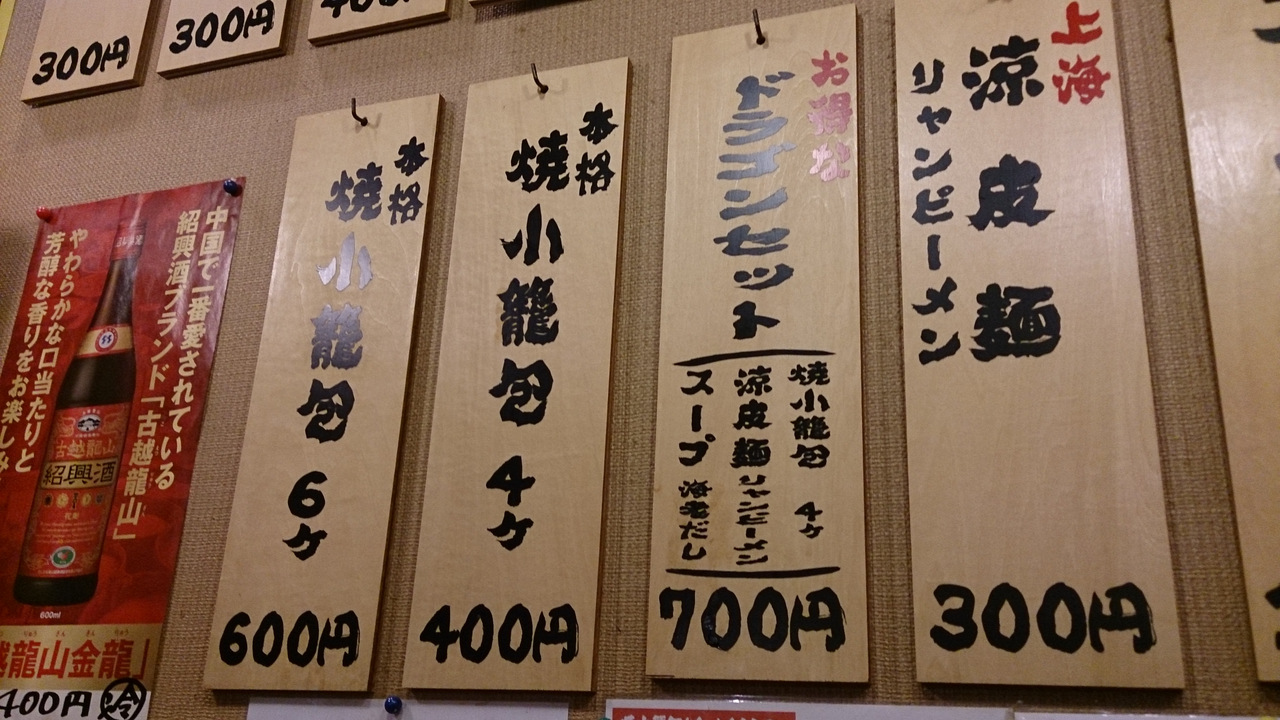 300円
300円
400円
上海
涼皮麺
リャンピーメン
300円
お得な
ドラゴンセット
焼小籠包 4ヶ
涼皮麺 リャンピーメン
スープ 海老だし
700円
本格
焼小籠包 4ヶ
400円
本格
焼小籠包 6ヶ
600円
中国で一番愛されている
紹興酒ブランド「古越龍山」
やわらかな口当たりと
芳醇な香りをお楽しみ
古越龍山
紹興酒
600ml
越龍山金龍」
400円 冷